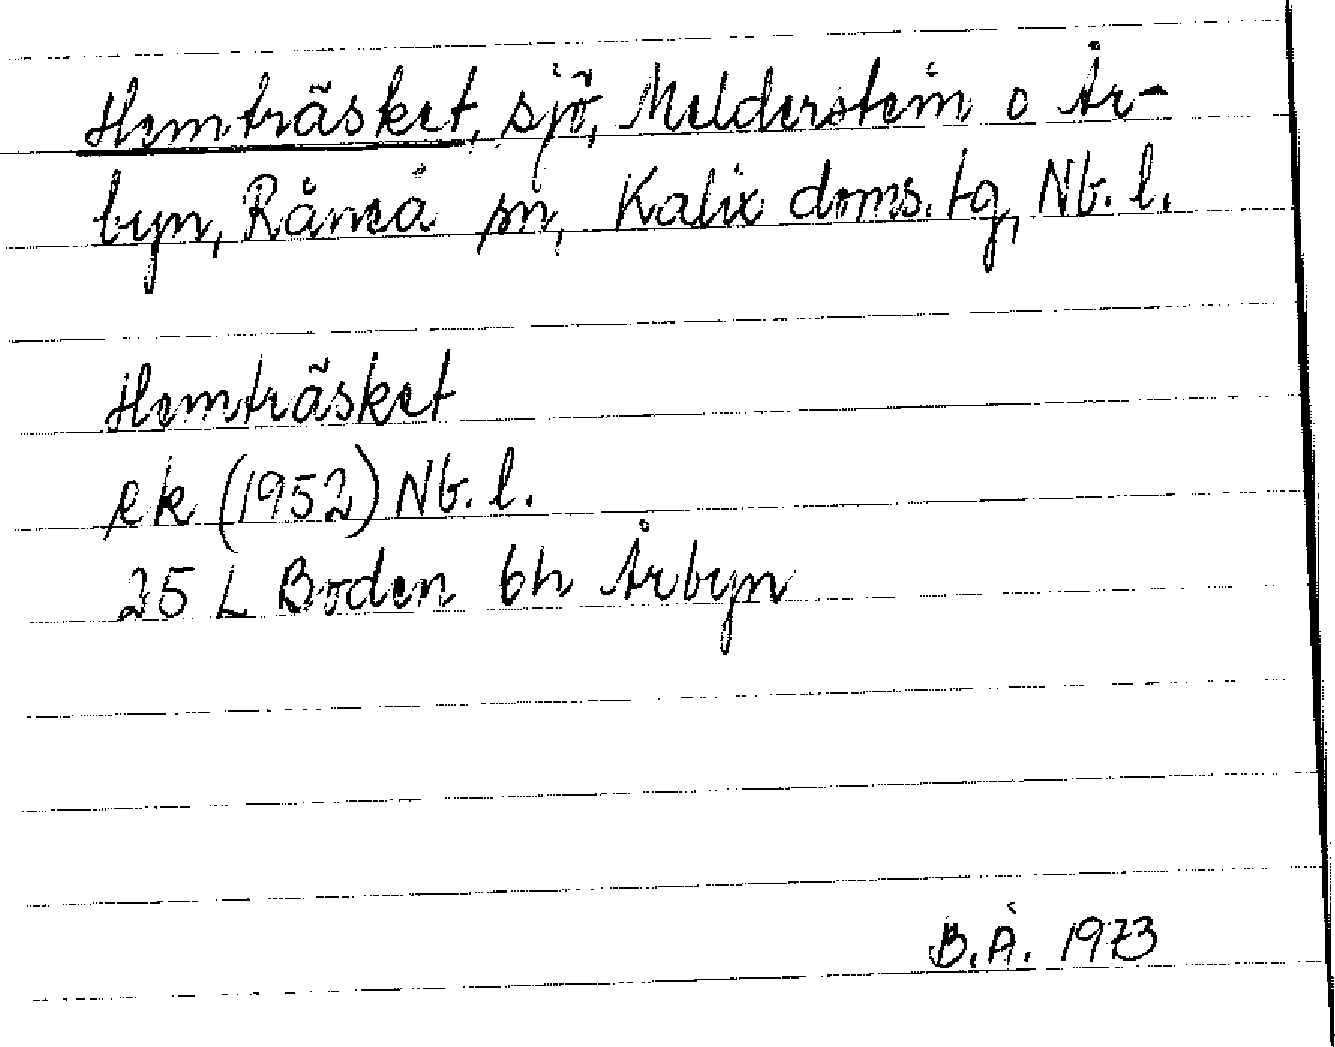 Hemträsket, sjö, Melderstein o År-
byn, Råneå sn, Kalix doms. tg, Nb. l.
Hemträsket
rk (1952) Nb. l.
25 L Boden 6h Årbyn
B.Å. 1973